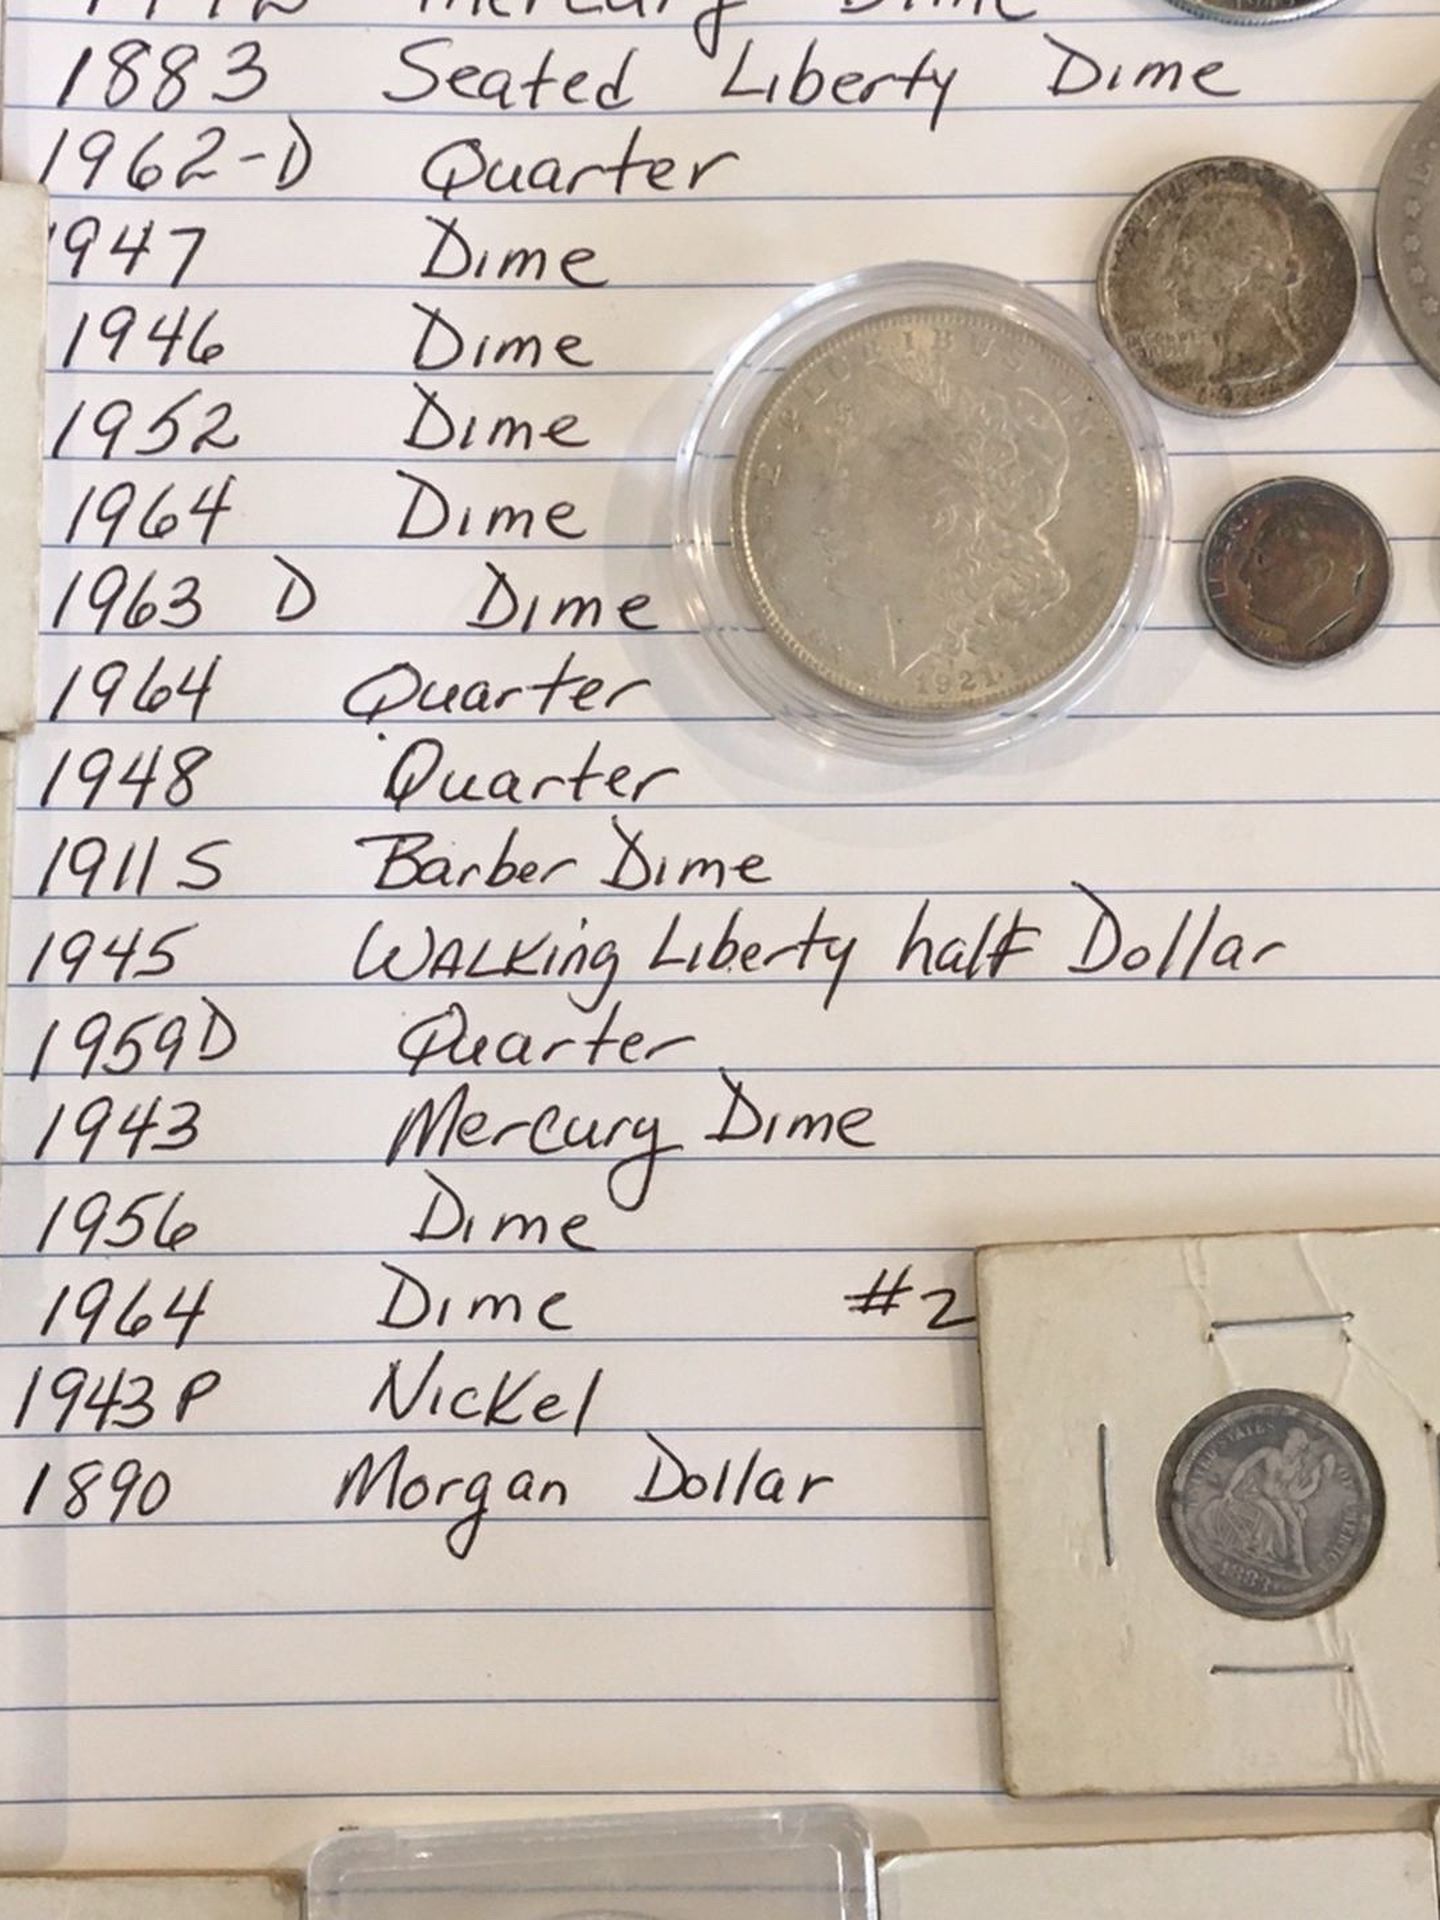 Mercury Dime
1883 Seated Liberty Dime
1962-D Quarter
1947 Dime
1946 Dime
1952 Dime
1964 Dime
1963 D Dime
1964 Quarter
1948 Quarter
1911 S Barber Dime
1945 WALKing Liberty half Dollar
1959D Quarter
1943 Mercury Dime
1956 Dime
1964 Dime #2
1943 P Nickel
1890 Morgan Dollar
1921
UNITED STATES OF AMERICA
1883